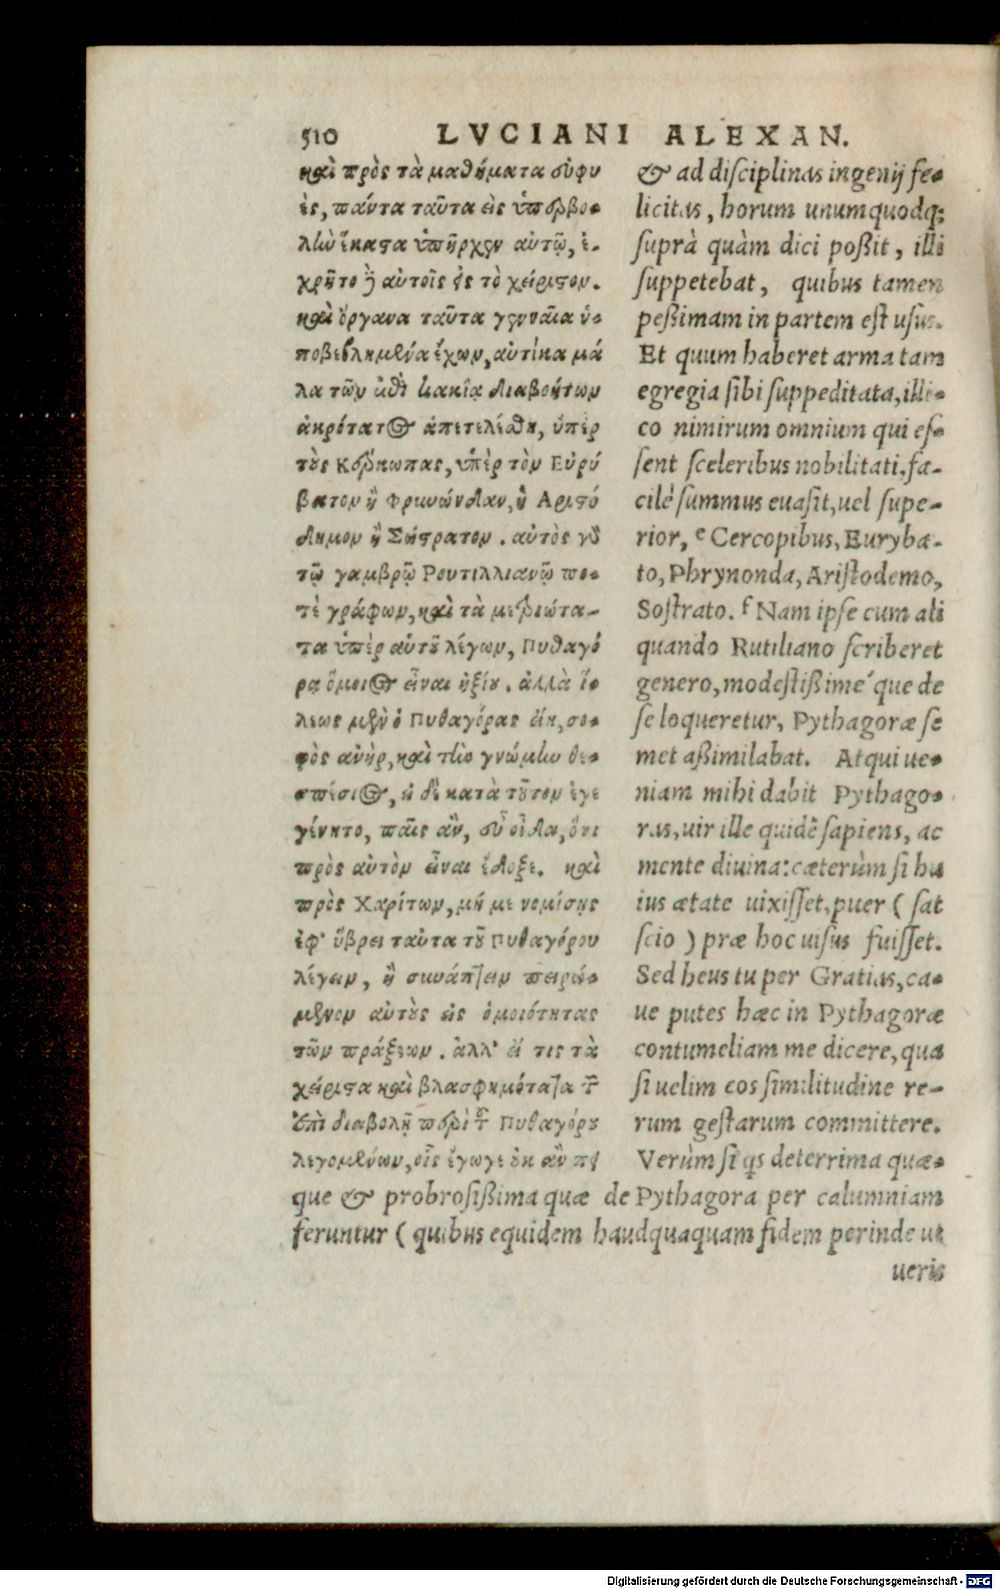 510 LVCIANI ALEXAN.
καὶ πρὸς τὰ μαθήματα εὐφυ
ὲς, πάντα ταῦτα εἰς ὑπερβο-
λὴν ἕκαστα ὑπῆρχεν αὐτῷ, ἐ-
χρῆτο δὲ αὐτοῖς ἐς τὸ χείριστον.
καὶ ὄργανα ταῦτα γενναῖα ὑ-
ποβεβλημένα ἔχων, αὐτίκα μά
λα τῶν ἐπὶ κακίᾳ διαβοήτων
ἀκρότατος ἀπετελέσθη, ὑπὲρ
τοὺς Κέρκωπας, ὑπὲρ τὸν Εὐρύ
βατον ἢ Φρυνώνδαν, ἢ Αριστό
δημον ἢ Σώστρατον. αὐτὸς γὰρ
τῷ γαμβρῷ Ρουτιλλιανῷ πο-
τὲ γράφων, καὶ τὰ μετριώτα-
τα ὑπὲρ αὑτοῦ λέγων, Πυθαγό
ρᾳ ὅμοιος εἶναι ἠξίου. ἀλλὰ ἵ-
λεως μὲν ὁ Πυθαγόρας εἴη, σο-
φὸς ἀνὴρ, καὶ τὴν γνώμην θε-
σπέσιος, εἰ δὲ κατὰ τοῦτον ἐγε
γένητο, παῖς ἂν, εὖ οἶδα, ὅτι
πρὸς αὐτὸν εἶναι ἔδοξε. καὶ
πρὸς Χαρίτων, μή με νομίσῃς
ἐφ' ὕβρει ταῦτα τοῦ Πυθαγόρου
λέγειν, ἢ συνάπτειν πειρώ-
μενον αὐτοὺς εἰς ὁμοιότητας
τῶν πράξεων. ἀλλ' εἴ τις τὰ
χείριστα καὶ βλασφημότατα τῶν
ἐπὶ διαβολῇ περὶ τοῦ Πυθαγόρου
λεγομένων, οἷς ἔγωγε οὐκ ἂν πει
& ad disciplinas ingenij fe-
licitas, horum unumquodq;
suprà quàm dici poßit, illi
suppetebat, quibus tamen
peßimam in partem est usus.
Et quum haberet arma tam
egregia sibi suppeditata, illi-
co nimirum omnium qui es-
sent sceleribus nobilitati, fa-
cilè summus euasit, uel supe-
rior, e Cercopibus, Euryba-
to, Phrynonda, Aristodemo,
Sostrato. f Nam ipse cum ali
quando Rutiliano scriberet
genero, modestißimé que de
se loqueretur, Pythagoræ se
met aßimilabat. Atqui ue-
niam mihi dabit Pythago-
ras, uir ille quidē sapiens, ac
mente diuina: cæterùm si hu
ius ætate uixisset, puer ( sat
scio ) præ hoc uisus fuisset.
Sed heus tu per Gratias, ca-
ue putes hæc in Pythagoræ
contumeliam me dicere, qua
si uelim eos similitudine re-
rum gestarum committere.
Verùm si qs deterrima quæ-
que & probrosißima quæ de Pythagora per calumniam
feruntur ( quibus equidem haudquaquam fidem perinde ut
ueris
Digitalisierung gefördert durch die Deutsche Forschungsgemeinschaft - DFG